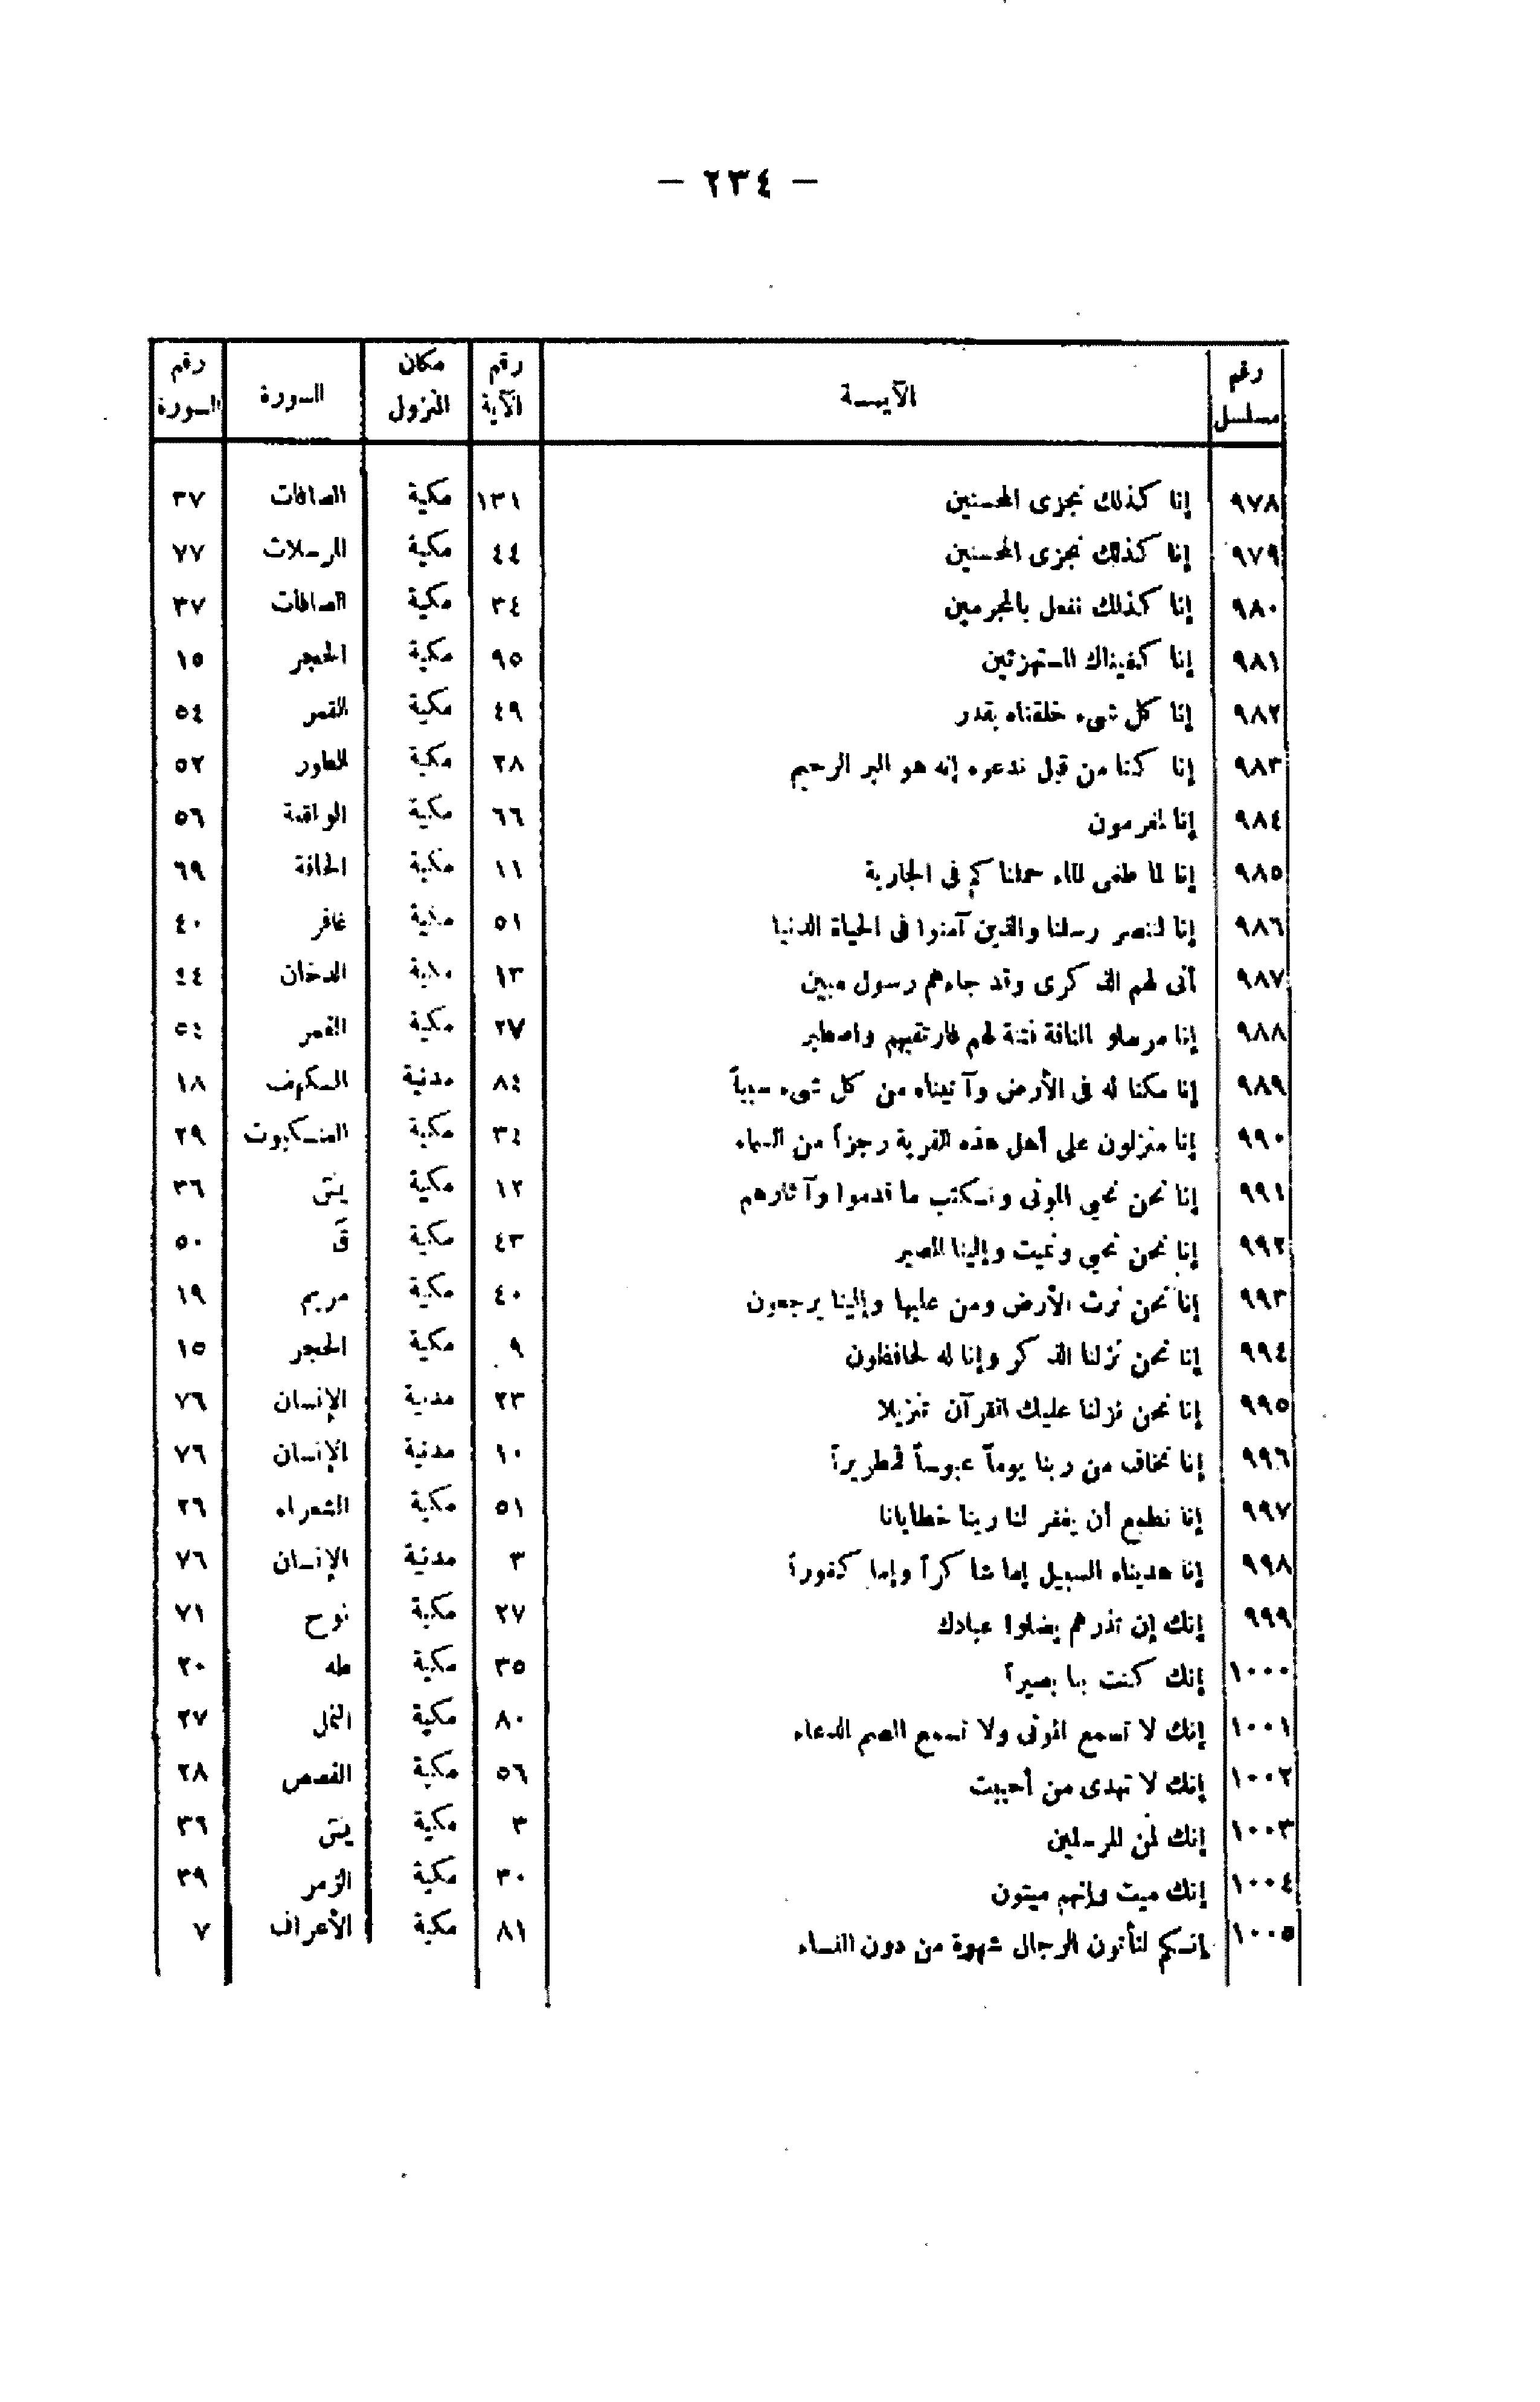 — ٢٣٤ —
رقم مسلسل الآيـــة رقم الآية مكان النزول السورة رقم السورة
٩٧٨ إنا كذلك نجزى المحسنين ١٣١ مكية الصافات ٣٧
٩٧٩ إنا كذلك نجزى المحسنين ٤٤ مكية المرسلات ٧٧
٩٨٠ إنا كذلك نفعل بالمجرمين ٣٤ مكية الصافات ٣٧
٩٨١ إنا كفيناك المستهزئين ٩٥ مكية الحجر ١٥
٩٨٢ إنا كل شىء خلقناه بقدر ٤٩ مكية القمر ٥٤
٩٨٣ إنا كنا من قبل ندعوه إنه هو البر الرحيم ٢٨ مكية الطور ٥٢
٩٨٤ إنا لمغرمون ٦٦ مكية الواقعة ٥٦
٩٨٥ إنا لما طغى الماء حملناكم فى الجارية ١١ مكية الحاقة ٦٩
٩٨٦ إنا لننصر رسلنا والذين آمنوا فى الحياة الدنيا ٥١ مكية غافر ٤٠
٩٨٧ أنى لهم الذكرى وقد جاءهم رسول مبين ١٣ مكية الدخان ٤٤
٩٨٨ إنا مرسلو الناقة فتنة لهم فارتقبهم واصطبر ٢٧ مكية القمر ٥٤
٩٨٩ إنا مكنا له فى الأرض وآتيناه من كل شىء سبباً ٨٤ مدنية الكهف ١٨
٩٩٠ إنا منزلون على أهل هذه القرية رجزاً من السماء ٣٤ مكية العنكبوت ٢٩
٩٩١ إنا نحن نحيى الموتى ونكتب ما قدموا وآثارهم ١٢ مكية يسٓ ٣٦
٩٩٢ إنا نحن نحيى ونميت وإلينا المصير ٤٣ مكية قٓ ٥٠
٩٩٣ إنا نحن نرث الأرض ومن عليها وإلينا يرجعون ٤٠ مكية مريم ١٩
٩٩٤ إنا نحن نزلنا الذكر وإنا له لحافظون ٩ مكية الحجر ١٥
٩٩٥ إنا نحن نزلنا عليك القرآن تنزيلا ٢٣ مدنية الإنسان ٧٦
٩٩٦ إنا نخاف من ربنا يوماً عبوساً قمطريراً ١٠ مدنية الإنسان ٧٦
٩٩٧ إنا نطمع أن يغفر لنا ربنا خطايانا ٥١ مكية الشعراء ٢٦
٩٩٨ إنا هديناه السبيل إما شاكراً وإما كفوراً ٣ مدنية الإنسان ٧٦
٩٩٩ إنك إن تذرهم يضلوا عبادك ٢٧ مكية نوح ٧١
١٠٠٠ إنك كنت بنا بصيراً ٣٥ مكية طه ٢٠
١٠٠١ إنك لا تسمع الموتى ولا تسمع الصم الدعاء ٨٠ مكية النمل ٢٧
١٠٠٢ إنك لا تهدى من أحببت ٥٦ مكية القصص ٢٨
١٠٠٣ إنك لمن المرسلين ٣ مكية يسٓ ٣٦
١٠٠٤ إنك ميت وإنهم ميتون ٣٠ مكية الزمر ٣٩
١٠٠٥ إنكم لتأتون الرجال شهوة من دون النساء ٨١ مكية الأعراف ٧